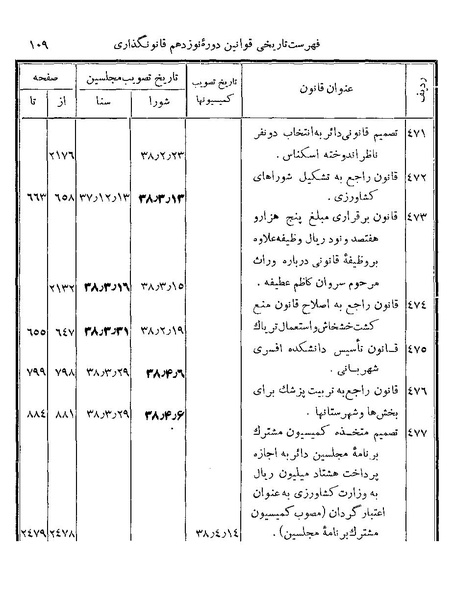 فهرست تاریخی قوانین دورهٔ نوزدهم قانونگذاری ۱۰۹
ردیف عنوان قانون تاریخ تصویب کمیسیونها تاریخ تصویب مجلسین صفحه
شورا سنا از تا
۴۷۱ تصمیم قانونی دائر به انتخاب دو نفر
ناظر اندوخته اسکناس . ۳۸٫۲٫۲۳ ۲۱۷۶
۴۷۲ قانون راجع به تشکیل شوراهای
کشاورزی . ۳۸٫۳٫۱۳ ۳۷٫۱۲٫۱۳ ۶۵۸ ۶۶۳
۴۷۳ قانون برقراری مبلغ پنج هزار و
هفتصد و نود ریال وظیفه علاوه
بر وظیفهٔ قانونی درباره وراث
مرحوم سروان کاظم عطیفه . ۳۸٫۳٫۱۵ ۳۸٫۳٫۱۶ ۲۱۳۲
۴۷۴ قانون راجع به اصلاح قانون منع
کشت خشخاش و استعمال تریاك ۳۸٫۲٫۱۹ ۳۸٫۳٫۳۱ ۶۴۷ ۶۵۵
۴۷۵ قانون تأسیس دانشکده افسری
شهربانی . ۳۸٫۴٫۶ ۳۸٫۳٫۲۹ ۷۹۸ ۷۹۹
۴۷۶ قانون راجع به تربیت پزشك برای
بخش‌ها و شهرستانها . ۳۸٫۴٫۶ ۳۸٫۳٫۲۹ ۸۸۱ ۸۸۴
۴۷۷ تصمیم متخذه کمیسیون مشترك
برنامهٔ مجلسین دائر به اجازه
پرداخت هشتاد میلیون ریال
به وزارت کشاورزی به عنوان
اعتبار گردان (مصوب کمیسیون
مشترك برنامهٔ مجلسین) . ۳۸٫۴٫۱۴ ۲۴۷۸ ۲۴۷۹